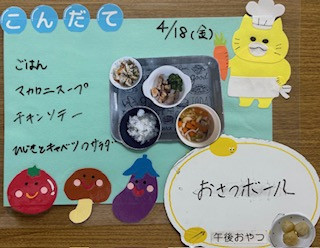 こんだて
4/18(金)
ごはん
マカロニスープ
チキンソテー
ひじきとキャベツのサラダ
おさつボール
午後おやつ